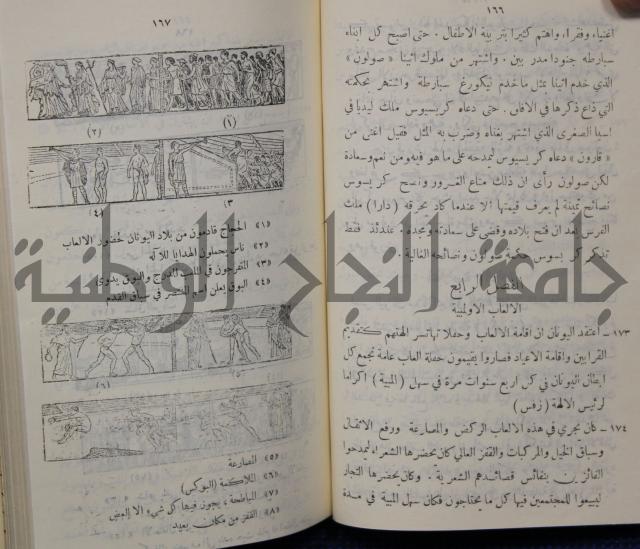 ١٦٦
اغنياء وفقراء، واهتم كثيرا بتربية الاطفال. حتى اصبح كل ابناء
سبارطه جنودا مدربين، واشتهر من ملوك اثينا «صولون»
الذي خدم اثينا بمثل ما خدم ليكورغ سبارطة واشتهر بحكمته
التي ذاع ذكرها في الافاق. حتى دعاه كريسيوس ملك ليديا في
اسيا الصغرى الذي اشتهر بغناه وضرب به المثل فقيل اغنى من
«قارون» دعاه كريسيوس ليمدحه على ما هو فيه ومن نعم وسعادة
لكن صولون رأى ان ذلك متاع الغرور ونصح كريسوس
نصائح ثمينة لم يعرف قيمتها الا عندما كاد يحرقه (دارا) ملك
الفرس بعد ان فتح بلاده وقضى على سعادته ومجده. عندئذ فقط
تذكر كريسوس حكمة صولون ونصائحه الغالية.
الفصل الرابع
الالعاب الاولمبية
١٧٣ – اعتقد اليونان ان اقامة الالعاب وحفلاتها تسر الهتهم كتقديم
القرابين واقامة الاعياد فصاروا يقيمون حفلة العاب عامة تجمع كل
ابطال اليونان في كل اربع سنوات مرة في سهل (المبية) اكراما
لرئيس الالهة (زفس)
١٧٤ – كان يجري في هذه الالعاب الركض والمصارعة ورفع الاثقال
وسباق الخيل والمركبات والقفز العالي كان يحضرها الشعراء ليمدحوا
الفائزين بنفائس قصائدهم الشعرية. وكان يحضرها التجار
ليبيعوا للمجتمعين فيها كل ما يحتاجون فكان سهل المبية في مدة
١٦٧
(١)
(٢)
(٣
(٤)
«١» الحجاج قادمون من بلاد اليونان لحضور الالعاب
«٢» ناس يحملون الهدايا للاله
«٣» المتفرجون في
«٤» البوق يعلن اسم المنتصر في سباق القدم
(٥
(٦)
«٥» المصارعة
«٦» الملاكمة (البوكس)
«٧» يجوز فيها كل شيء الا العض
«٨» القفز من مكان بعيد
جامعة النجاح الوطنية